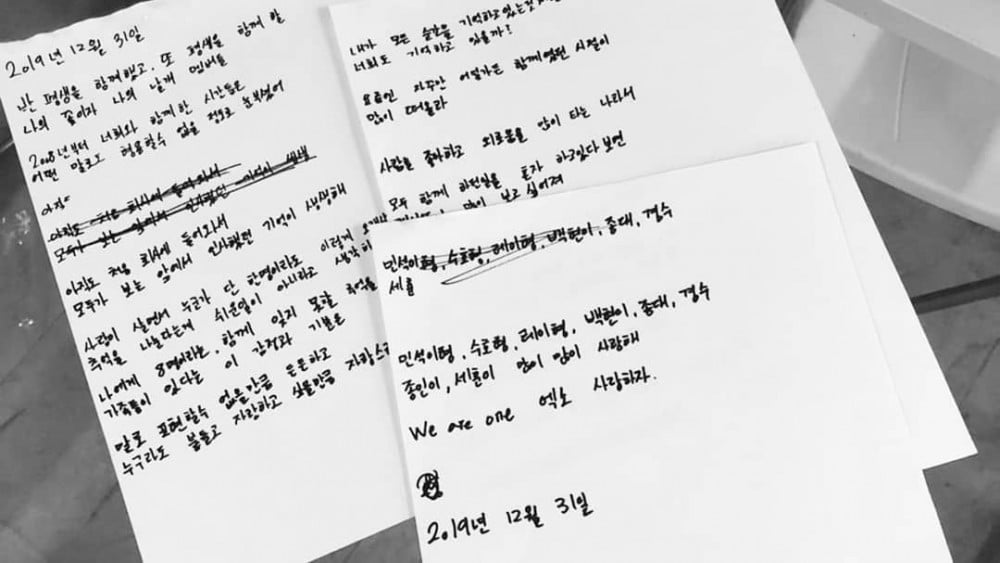 2019년 12월 31일
난 평생을 함께했고, 또 평생을 함께 할
나의 꽃이자 나의 날개 멤버들
2008년부터 너희와 함께 한 시간들은
어떤 말로도 형용할수 없을 정도로 눈부셨어
아직
아직도 처음 회사에 들어와서
모두가 보는 앞에서 인사했던 기억이 생생
아직도 처음 회사에 들어와서
모두가 보는 앞에서 인사했던 기억이 생생해
사람이 살면서 누군가 단 한명이라도 이렇게
추억을 나눈다는게 쉬운일이 아니라고 생각하
나에게 8명이라는, 함께 잊지 못할 추억을
가족들이 있다는 이 감정과 기분은
말로 표현할수 없을만큼 든든하고
누구라도 붙들고 자랑하고 싶을만큼 자랑스
내가 모든 순간을 기억하고 있는것
너희도 기억하고 있을까?
요즘엔 자꾸만 어딜가든 함께였던 시절이
많이 떠올라
사람을 좋아하고 외로움을 많이 타는 나라서
모두 함께 하던일을 혼자 하고있다 보면
많이 보고 싶어져
민석이형, 수호형, 레이형, 백현이, 종대, 경수
세훈
민석이형, 수호형, 레이형, 백현이, 종대, 경수
종인이, 세훈이 많이 많이 사랑해
We are one 엑소 사랑하자.
2019년 12월 31일